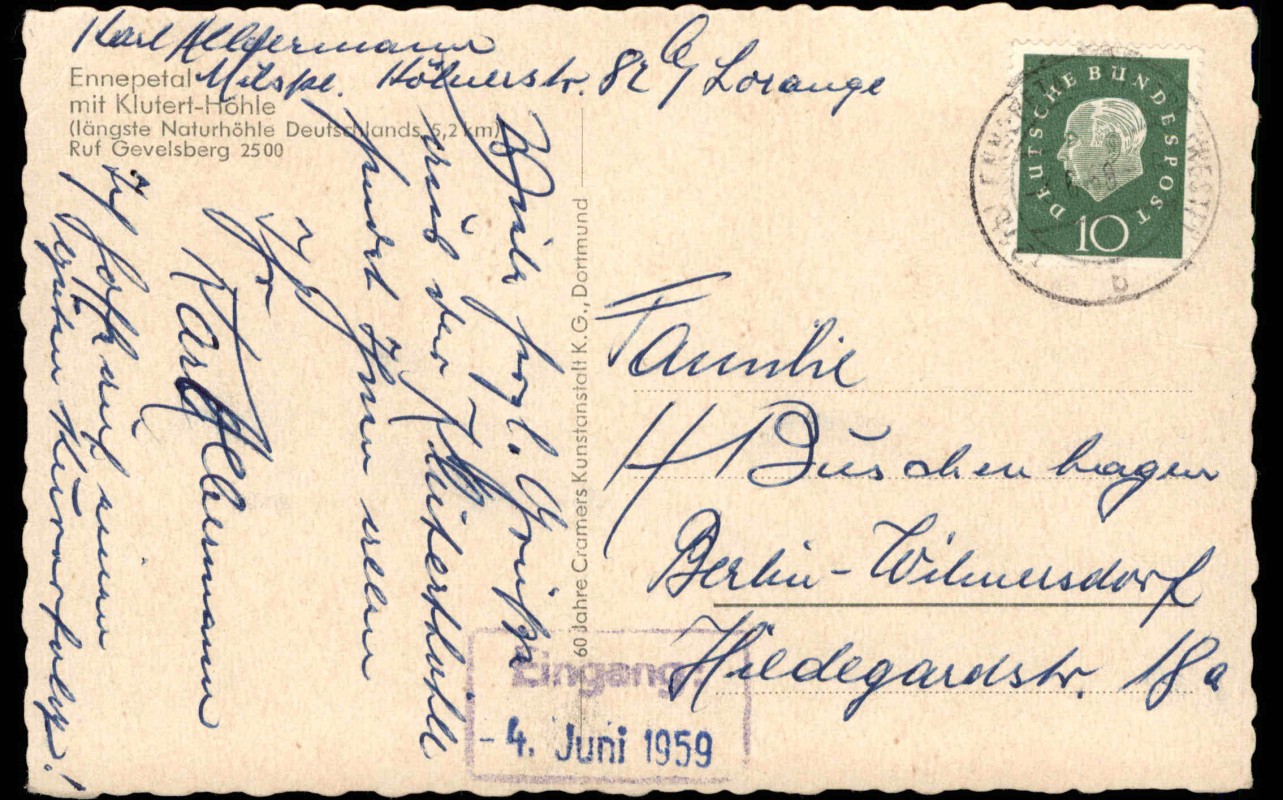 Karl Aldermann
Milspe. Kölnerstr. 82 c/ Lorange
Ennepetal
mit Klutert-Höhle
(längste Naturhöhle Deutschlands 5,2 km)
Ruf Gevelsberg 2500
Viele Grüße
aus der Kluterthöhle
sendet Ihnen allen
Ihr
Karl Aldermann
Ich hoffe auf einen
guten Kurerfolg!
60 Jahre Cramers Kunstanstalt K.G., Dortmund
DEUTSCHE BUNDESPOST
10
b
Familie
H Buschenhagen
Berlin-Wilmersdorf
Hildegardstr. 18a
Eingang:
- 4. Juni 1959